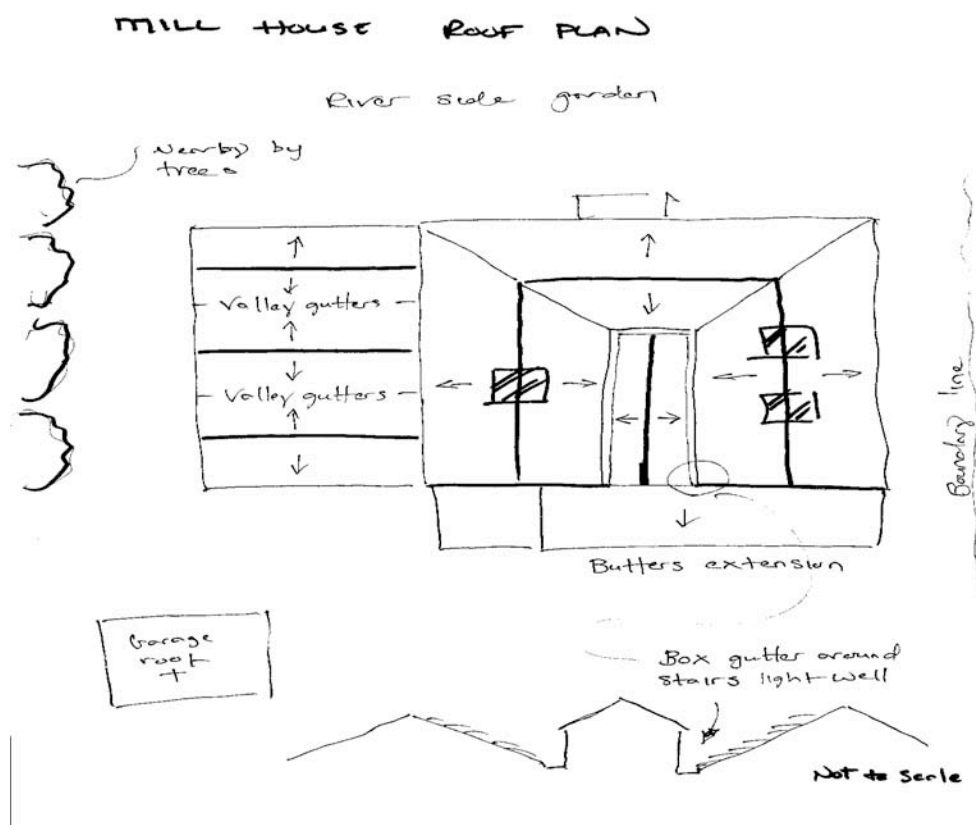 MILL HOUSE ROOF PLAN
River side garden
Nearby by
trees
Valley gutters
Valley gutters
Boundary line
Butters extension
Garage
roof
Box gutter around
stairs light well
Not to scale